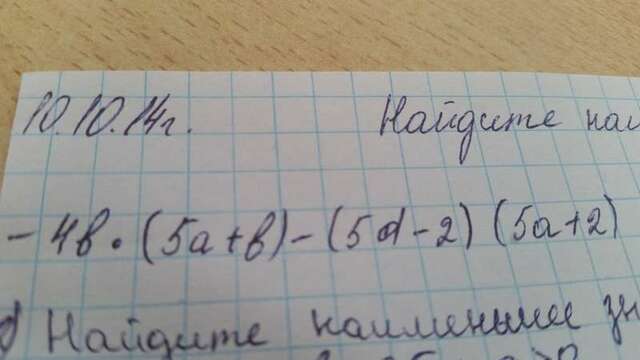 10.10.14г. Найдите
-4в·(5а+в)-(5а-2)(5а+2)
Найдите наименьшее